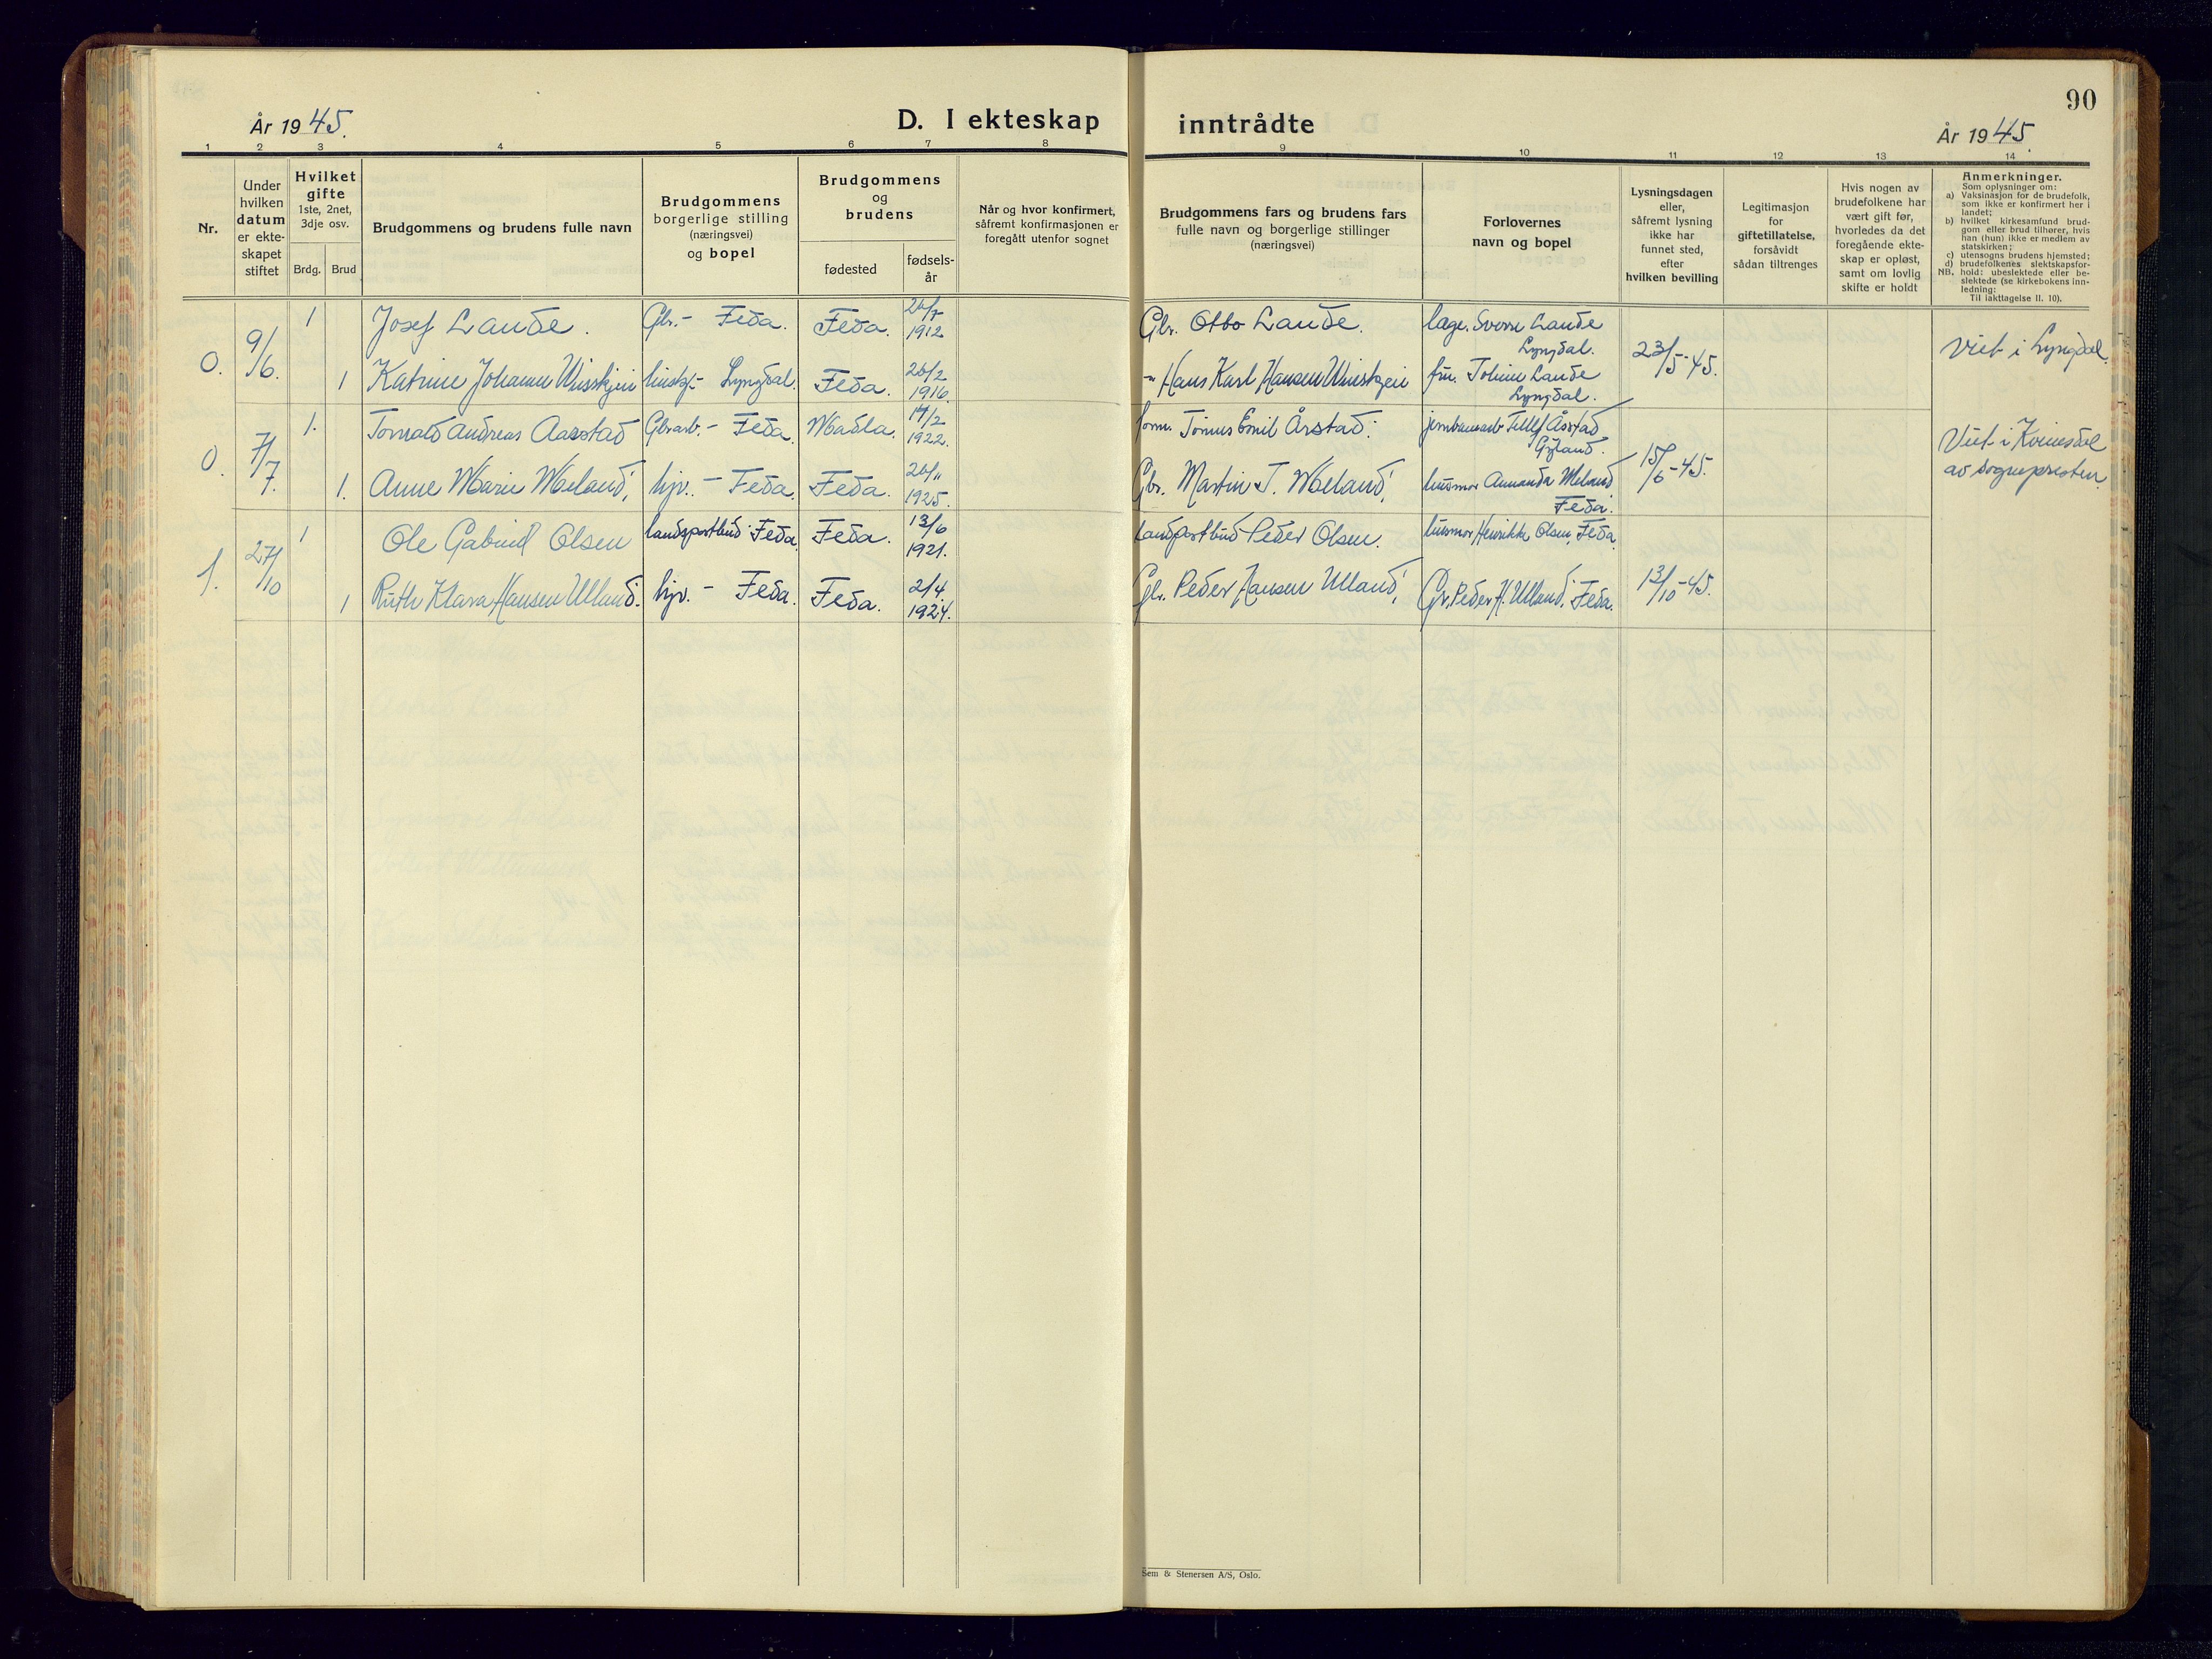 90
År 1945.
D. I ekteskap inntrådte
År 1945.
1 2 3 4 5 6 7 8 9 10 11 12 13 14
Nr.
Under
hvilken
datum
er ekte-
skapet
stiftet
Hvilket
gifte
1ste, 2net,
3dje osv.
Brdg. Brud
Brudgommens og brudens fulle navn
Brudgommens
borgerlige stilling
(næringsvei)
og bopel
Brudgommens
og
brudens
fødested
fødsels-
år
Når og hvor konfirmert,
såfremt konfirmasjonen er
foregått utenfor sognet
Brudgommens fars og brudens fars
fulle navn og borgerlige stillinger
(næringsvei)
Forlovernes
navn og bopel
Lysningsdagen
eller,
såfremt lysning
ikke har
funnet sted,
efter
hvilken bevilling
Legitimasjon
for
giftetillatelse,
forsåvidt
sådan tiltrenges
Hvis nogen av
brudefolkene har
vært gift før,
hvorledes da det
foregående ekte-
skap er opløst,
samt om lovlig
skifte er holdt
Anmerkninger.
Som oplysninger om:
a) Vaksinasjon for de brudefolk,
som ikke er konfirmert her i
landet;
b) hvilket kirkesamfund brud-
gom eller brud tilhører, hvis
han (hun) ikke er medlem av
statskirken;
c) utensogns brudens hjemsted;
d) brudefolkenes slektskapsfor-
NB. hold: ubeslektede eller be-
slektede (se kirkebokens inn-
ledning:
Til iakttagelse II. 10).
0. 9/6. 1 Josef Lande. Gbr. - Feda. Feda. 26/7 1912 Gbr. Otto Lande. læge. Sverre Lande
Lyngdal. 23/5-45. Viet i Lyngdal.
1 Katrine Johanne Lyngdal. Feda. 26/2 1916. -" Hans Karl Hansen fru. Lande
Lyngdal.
0. 7/7. 1. Andreas Aarstad Gbrarb. - Feda. Madla. 14/2 1922. Tønnes Emil Årstad. Årstad
Gyland. 15/6-45. Viet i Kvinesdal
av sognepresten.
1. Anne Marie Meland. hjv. - Feda. Feda. 26/11 1925. Gbr. Martin T. Meland. husmor Amanda Meland
Feda.
1. 27/10 1 Ole Gabriel Olsen landspostbud Feda. Feda. 13/6 1921. Landpostbud Peder Olsen. husmor Henrikke Olsen, Feda.
1 Ruth Klara Hansen Ulland. hjv. - Feda. Feda. 2/4 1924. Gbr. Peder Hansen Ulland. Gbr. Peder H. Ulland. Feda. 13/10-45.
Sem & Stenersen A/S, Oslo.